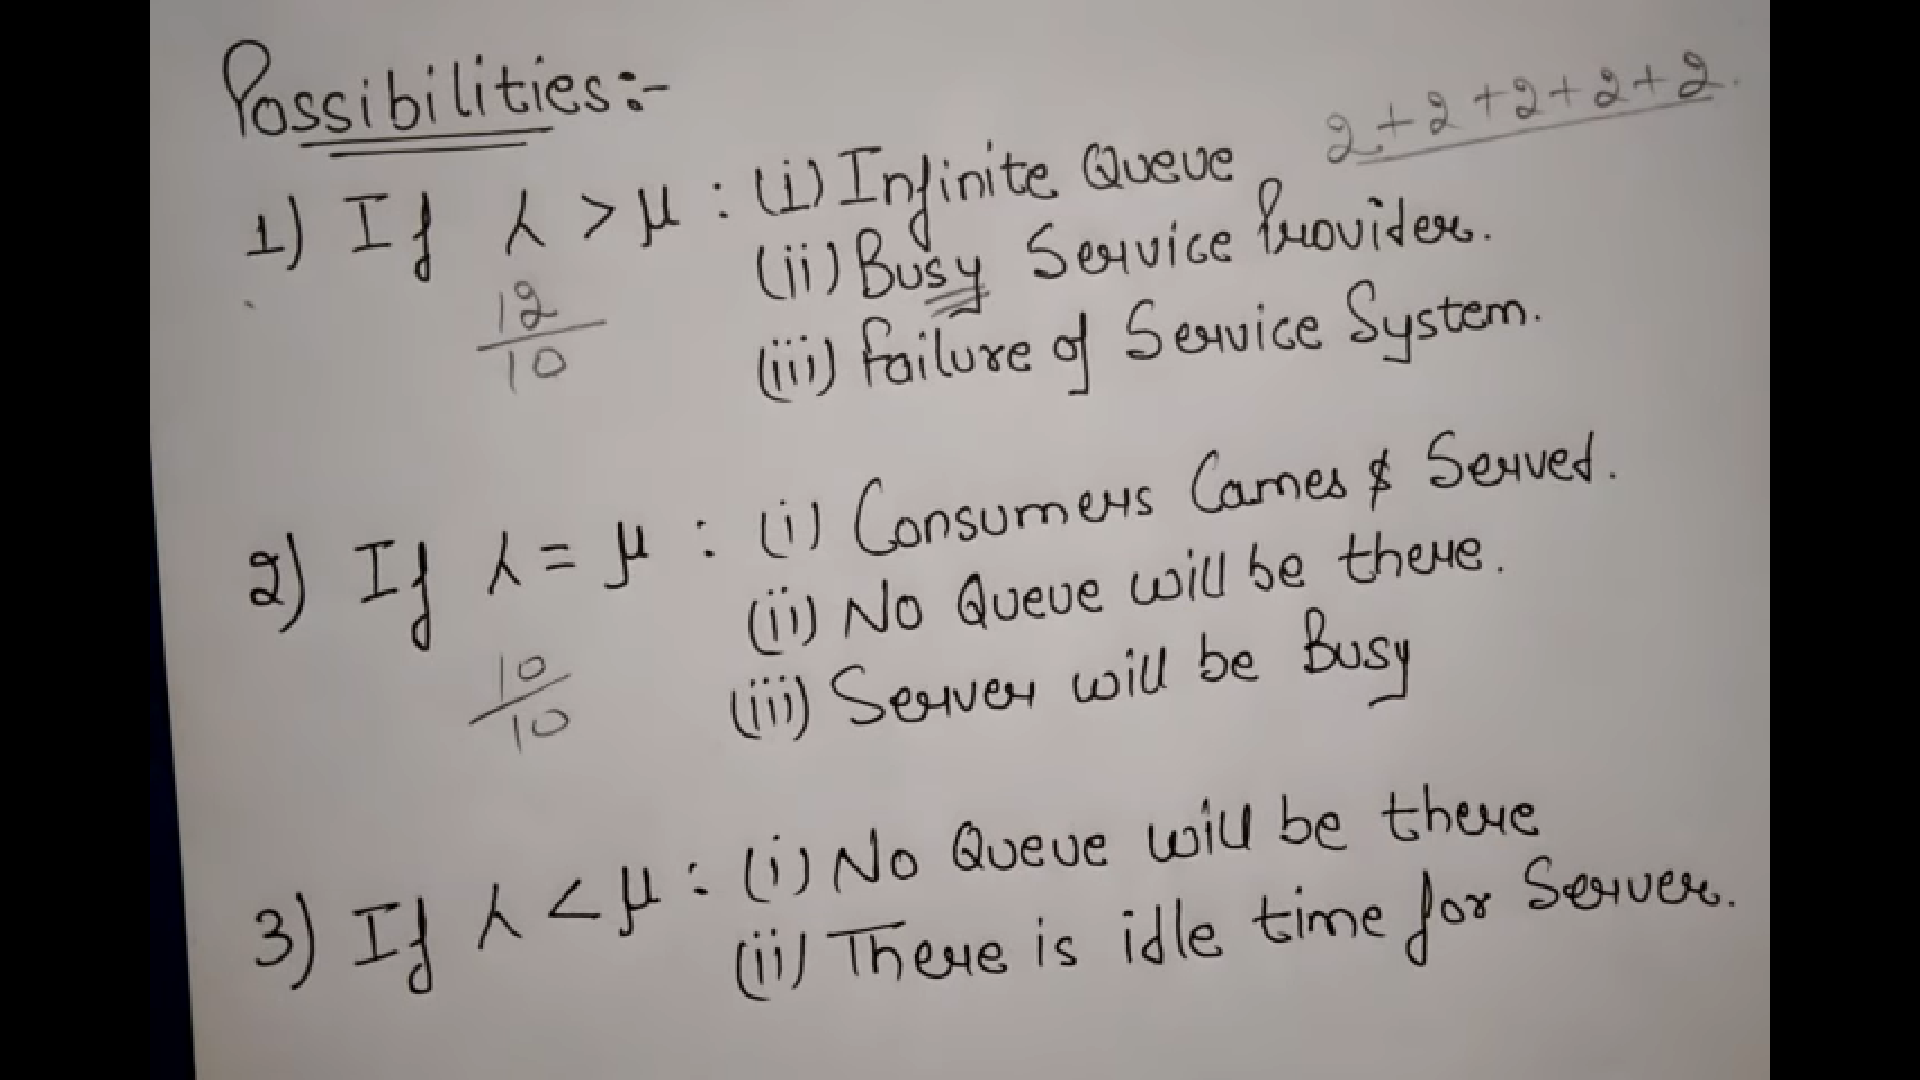 Possibilities:-
2+2+2+2+2.
1) If λ > μ : (i) Infinite Queue
(ii) Busy Service Provider.
12/10
(iii) Failure of Service System.
2) If λ = μ : (i) Consumers Cames & Served.
(ii) No Queue will be there.
10/10
(iii) Server will be Busy
3) If λ < μ : (i) No Queue will be there
(ii) There is idle time for Server.